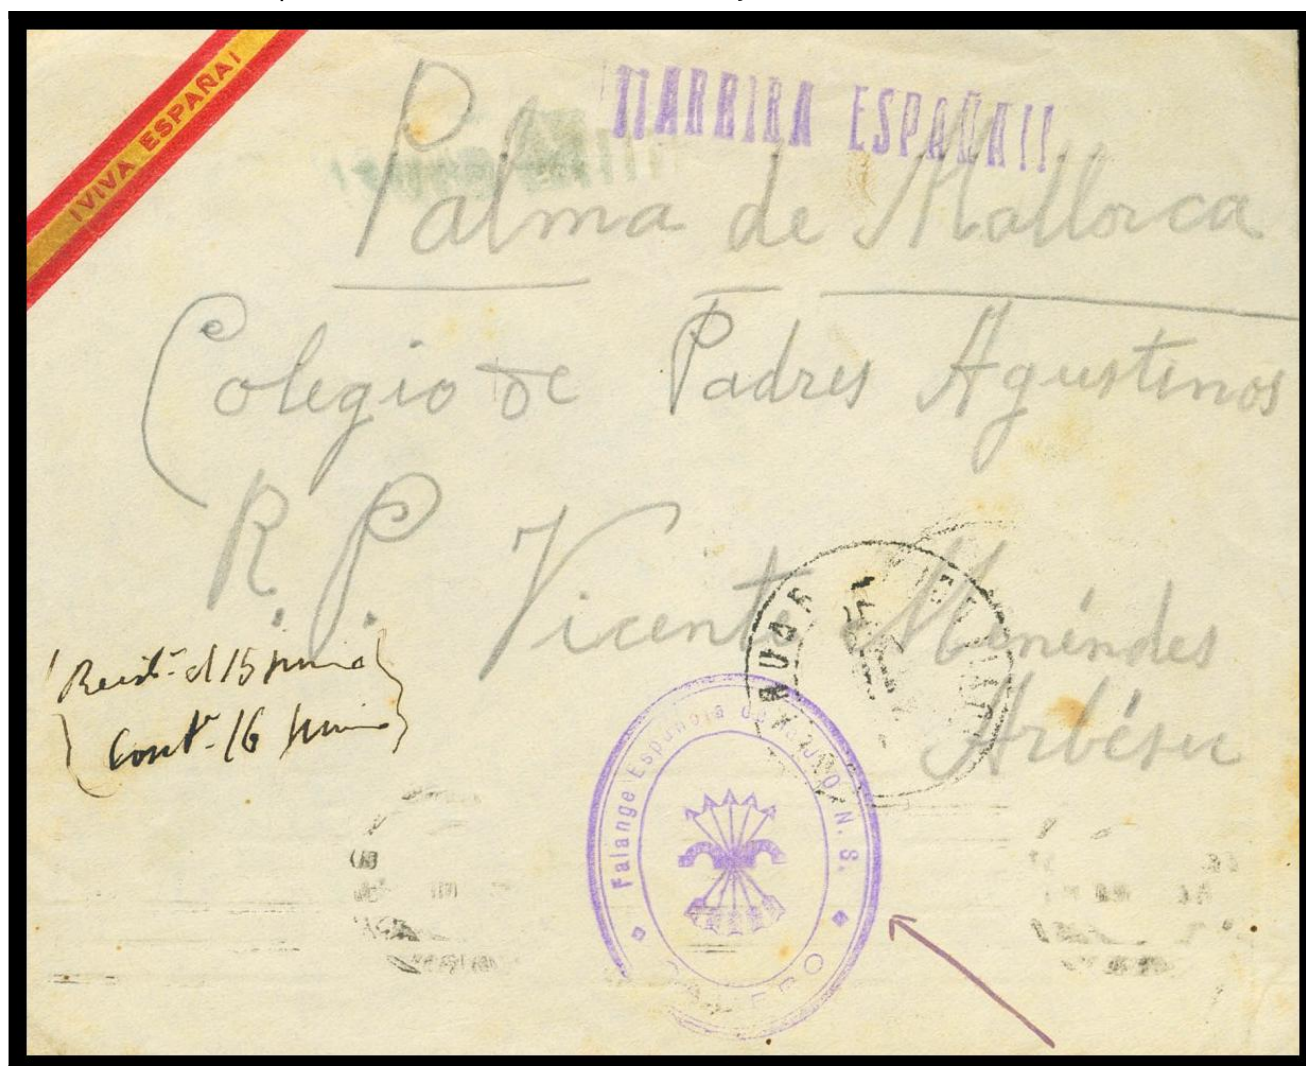 ¡VIVA ESPAÑA!
¡¡ARRIBA ESPAÑA!!
Palma de Mallorca
Colegio de Padres Agustinos
R. P. Vicente Menéndes
Arbésu
el 15 junio
16 junio
Falange Española de
N. S.